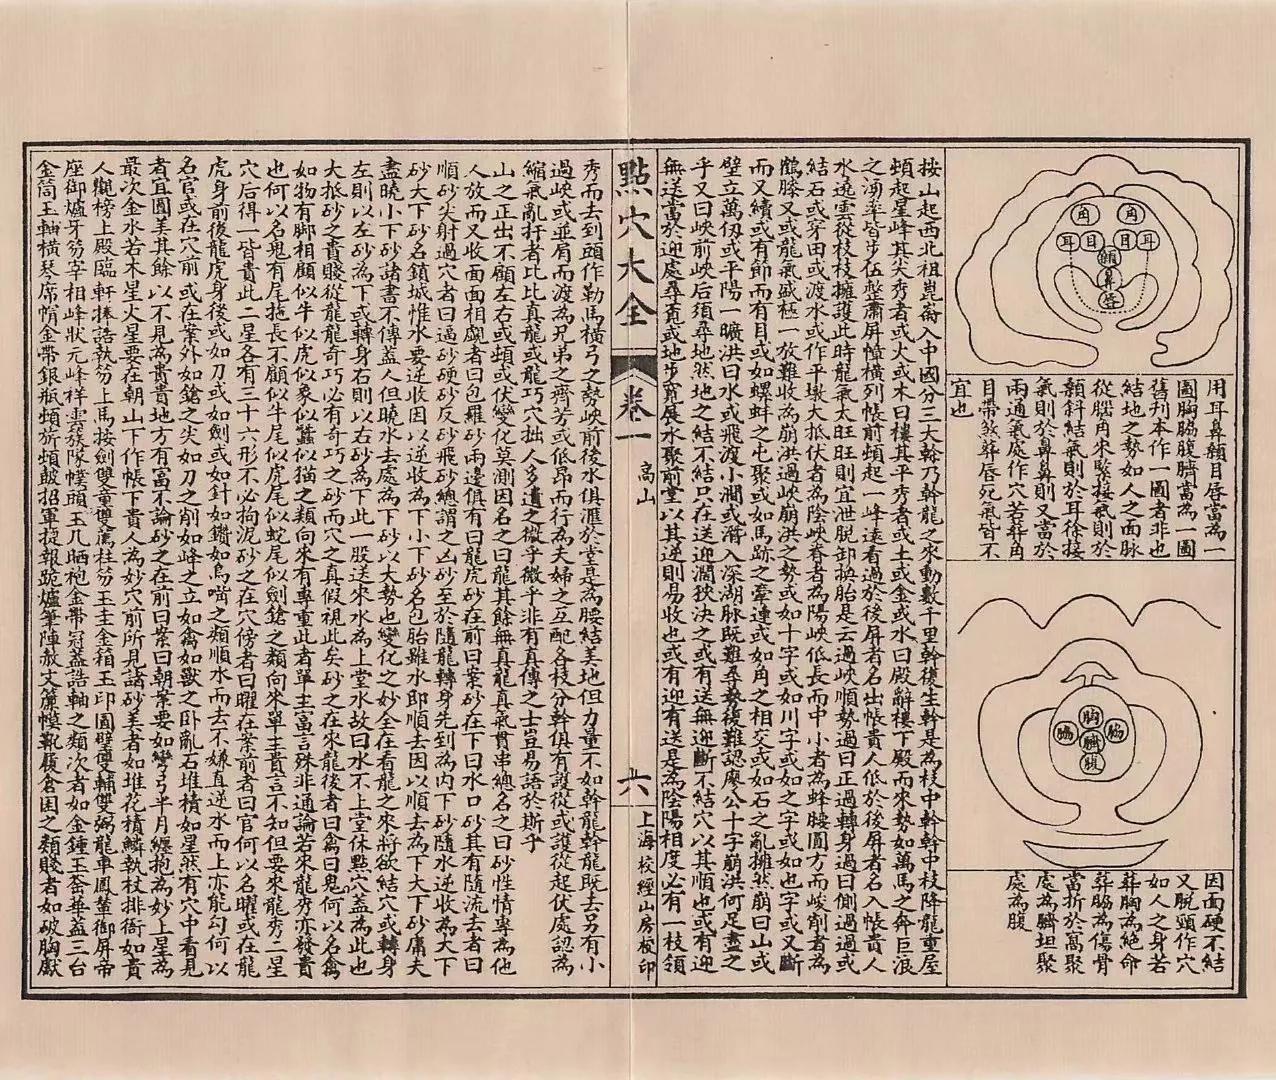 角
角
耳
目
目
耳
額
鼻
唇
用耳鼻額目唇當為一
圖胸脇腹臍當為一圖
舊刊本作一圖者非也
結地之勢如人之面脈
從腦角來緊接氣則於
顙斜結氣則於耳徐接
氣則於鼻鼻則又當於
兩通氣處作穴若葬角
目帶煞葬唇死氣皆不
宜也
胸
脇
脇
臍
腹
因面硬不結
又脫頸作穴
如人之身若
葬胸為絕命
葬脇為傷骨
當折於窩聚
處為臍坦聚
處為腹
按山起西北祖崑崙入中國分三大幹乃幹龍之來動數千里幹復生幹是為枝中幹幹中枝降龍重屋
頓起星峰其尖秀者或火或木曰樓其平秀者或土或金或水曰殿辭樓下殿而來勢如萬馬之奔巨浪
之湧峯皆步伍整肅屏幢橫列帳前頓起一峰遠看過於後屏者名出帳貴人低於後屏者名入帳貴人
水遶雲從枝枝擁護此時龍氣太旺旺則宜泄脫卸換胎是云過峽順勢過曰正過轉身過曰側過過或
結石或穿田或渡水或作平墩大抵伏者為陰峽脊者為陽峽低長而中小者為蜂腰圓方而峻削者為
鶴膝又或龍氣盛極一放難收為崩洪過峽崩洪之勢或如十字或如川字或如之字或如也字或又斷
而又續或有節而有目或如螺蚌之屯聚或如馬跡之牽連或如角之相交或如石之亂擁然崩曰山或
壁立萬仞或平陽一曠洪曰水或飛渡小澗或潛入深湖脉既難尋勢復難認廖公十字崩洪何足盡之
乎又曰峽前峽后須尋地然地之結不結只在送迎濶狹决之或有送無迎斷不結穴以其順也或有迎
無送當於迎處尋覓或地步寬展水聚前堂以其逆則易收也或有迎有送是為陰陽相度必有一枝領
點穴大全
卷一
高山
六
上海校經山房校印
秀而去到頭作勒馬橫弓之勢峽前後水俱滙於堂是為腰結美地但力量不如幹龍幹龍既去另有小
過峽或並肩而渡為兄弟之齊芳或低昂而行為夫婦之互配各枝分幹俱有護從或護從起伏處認為
縮氣亂扦者比比真龍或龍巧穴拙人多遺之微乎微乎非有真傳之士豈易語於斯乎
山之正出不顧左右或頓或伏變化莫測因名之曰龍其餘無真龍真氣貫串總名之曰砂性情專為他
人放而又收面面相覷者曰包羅砂兩邊俱有曰龍虎砂在前曰案砂在下曰水口砂其有隨流去者曰
順砂尖射過穴者曰逼砂硬砂反砂飛砂總謂之凶砂至於隨龍轉身先到為內下砂隨水逆收為大下
砂大下砂名鎖城惟水要逆收因以逆收為下小下砂名包胎雖水即順去因以順去為下大下砂庸夫
盡曉小下砂諸書不傳蓋人但曉水去處為下砂以大勢也變化之妙全在看龍之來將欲結穴或轉身
左則以左砂為下或轉身右則以右砂為下此一股送來水為上堂水故曰水不上堂休點穴蓋為此也
大抵砂之貴賤從龍龍奇巧必有奇巧之砂而穴之真假視此矣砂之在來龍後者曰禽曰鬼何以名禽
如物有脚相顧似牛似虎似象似蠶似猫之類向來有專重此者單主富言殊非通論若來龍秀亦發貴
也何以名鬼有尾拖長不顧似牛尾似虎尾似蛇尾似劍鎗之類向來單主貴言不知但要來龍秀二星
穴后得一皆貴此二星各有三十六形不必拘泥砂之在穴傍者曰曜在案前者曰官何以名曜或在龍
虎身前後龍虎身後或如刀或如劍或如針如鑽如鳥啃之類順水而去不嫌直逆水而上亦能勾何以
名官或在穴前或在案外如鎗之尖如刀之削如峰之立如禽如獸之卧亂石堆積如星然有穴中看見
者宜圓美其餘以不見為貴貴地方有富不論砂之在前曰案曰朝案要如彎弓半月纏抱為妙上星為
最次金水若木星火星要在朝山下作帳下貴人為妙穴前所見諸砂美者如堆花積麟執杖排衙如貴
人觀榜上殿臨軒捧誥執笏上馬按劍雙童雙薦柱笏玉圭金箱玉印圓璧雙輔雙弼龍車鳳輦御屏帝
座御爐牙笏宰相峰狀元峰祥雲簇隊幞頭玉几晒袍金帶冠蓋誥軸之類次者如金鐘玉釜華蓋三台
金筒玉軸橫琴席帽金帶銀瓶頓笏頓皷招軍提報跪爐筆陣赦文簾幙靴履倉囷之類賤者如破胸獻